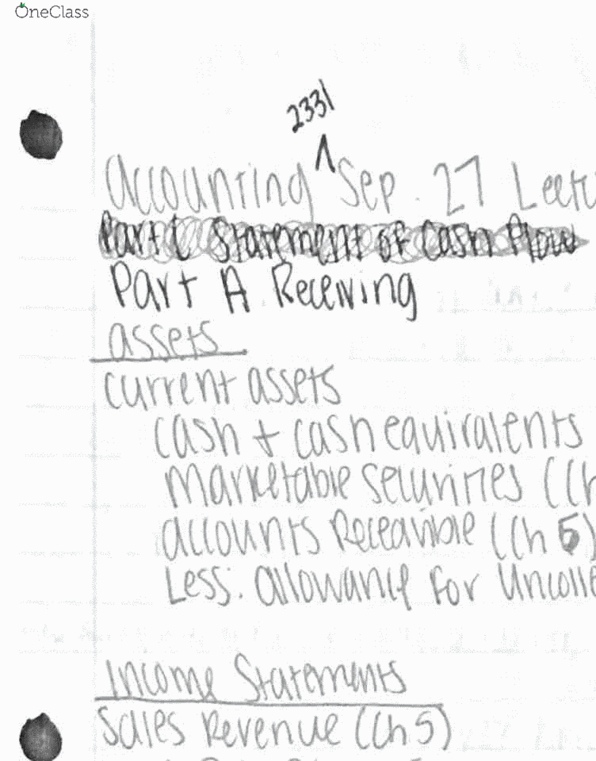 OneClass
2331
Accounting ^ Sep. 27 Lectu
Part C Statement of Cash Flow
Part A Receiving
assets
current assets
cash + cash equivalents
Marketable Securities (Ch
accounts Receavible (Ch 5)
Less: allowance for Uncolle
Income Statements
Sales Revenue (Ch 5)